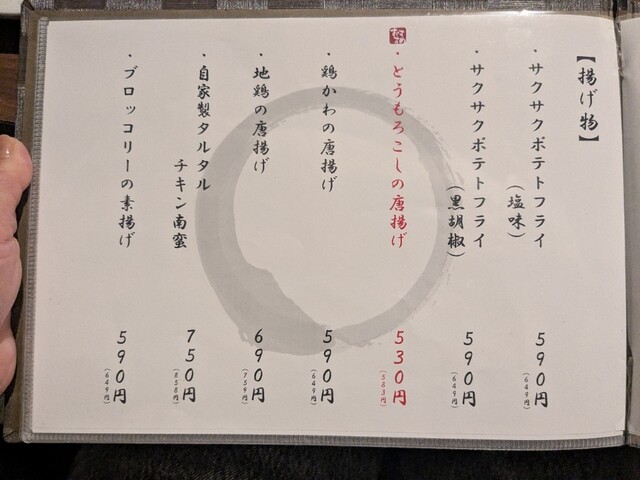 【揚げ物】
・サクサクポテトフライ
（塩味）
590円
（649円）
・サクサクポテトフライ
（黒胡椒）
590円
（649円）
・とうもろこしの唐揚げ
530円
（583円）
・鶏かわの唐揚げ
590円
（649円）
・地鶏の唐揚げ
690円
（759円）
・自家製タルタル
チキン南蛮
750円
（858円）
・ブロッコリーの素揚げ
590円
（649円）